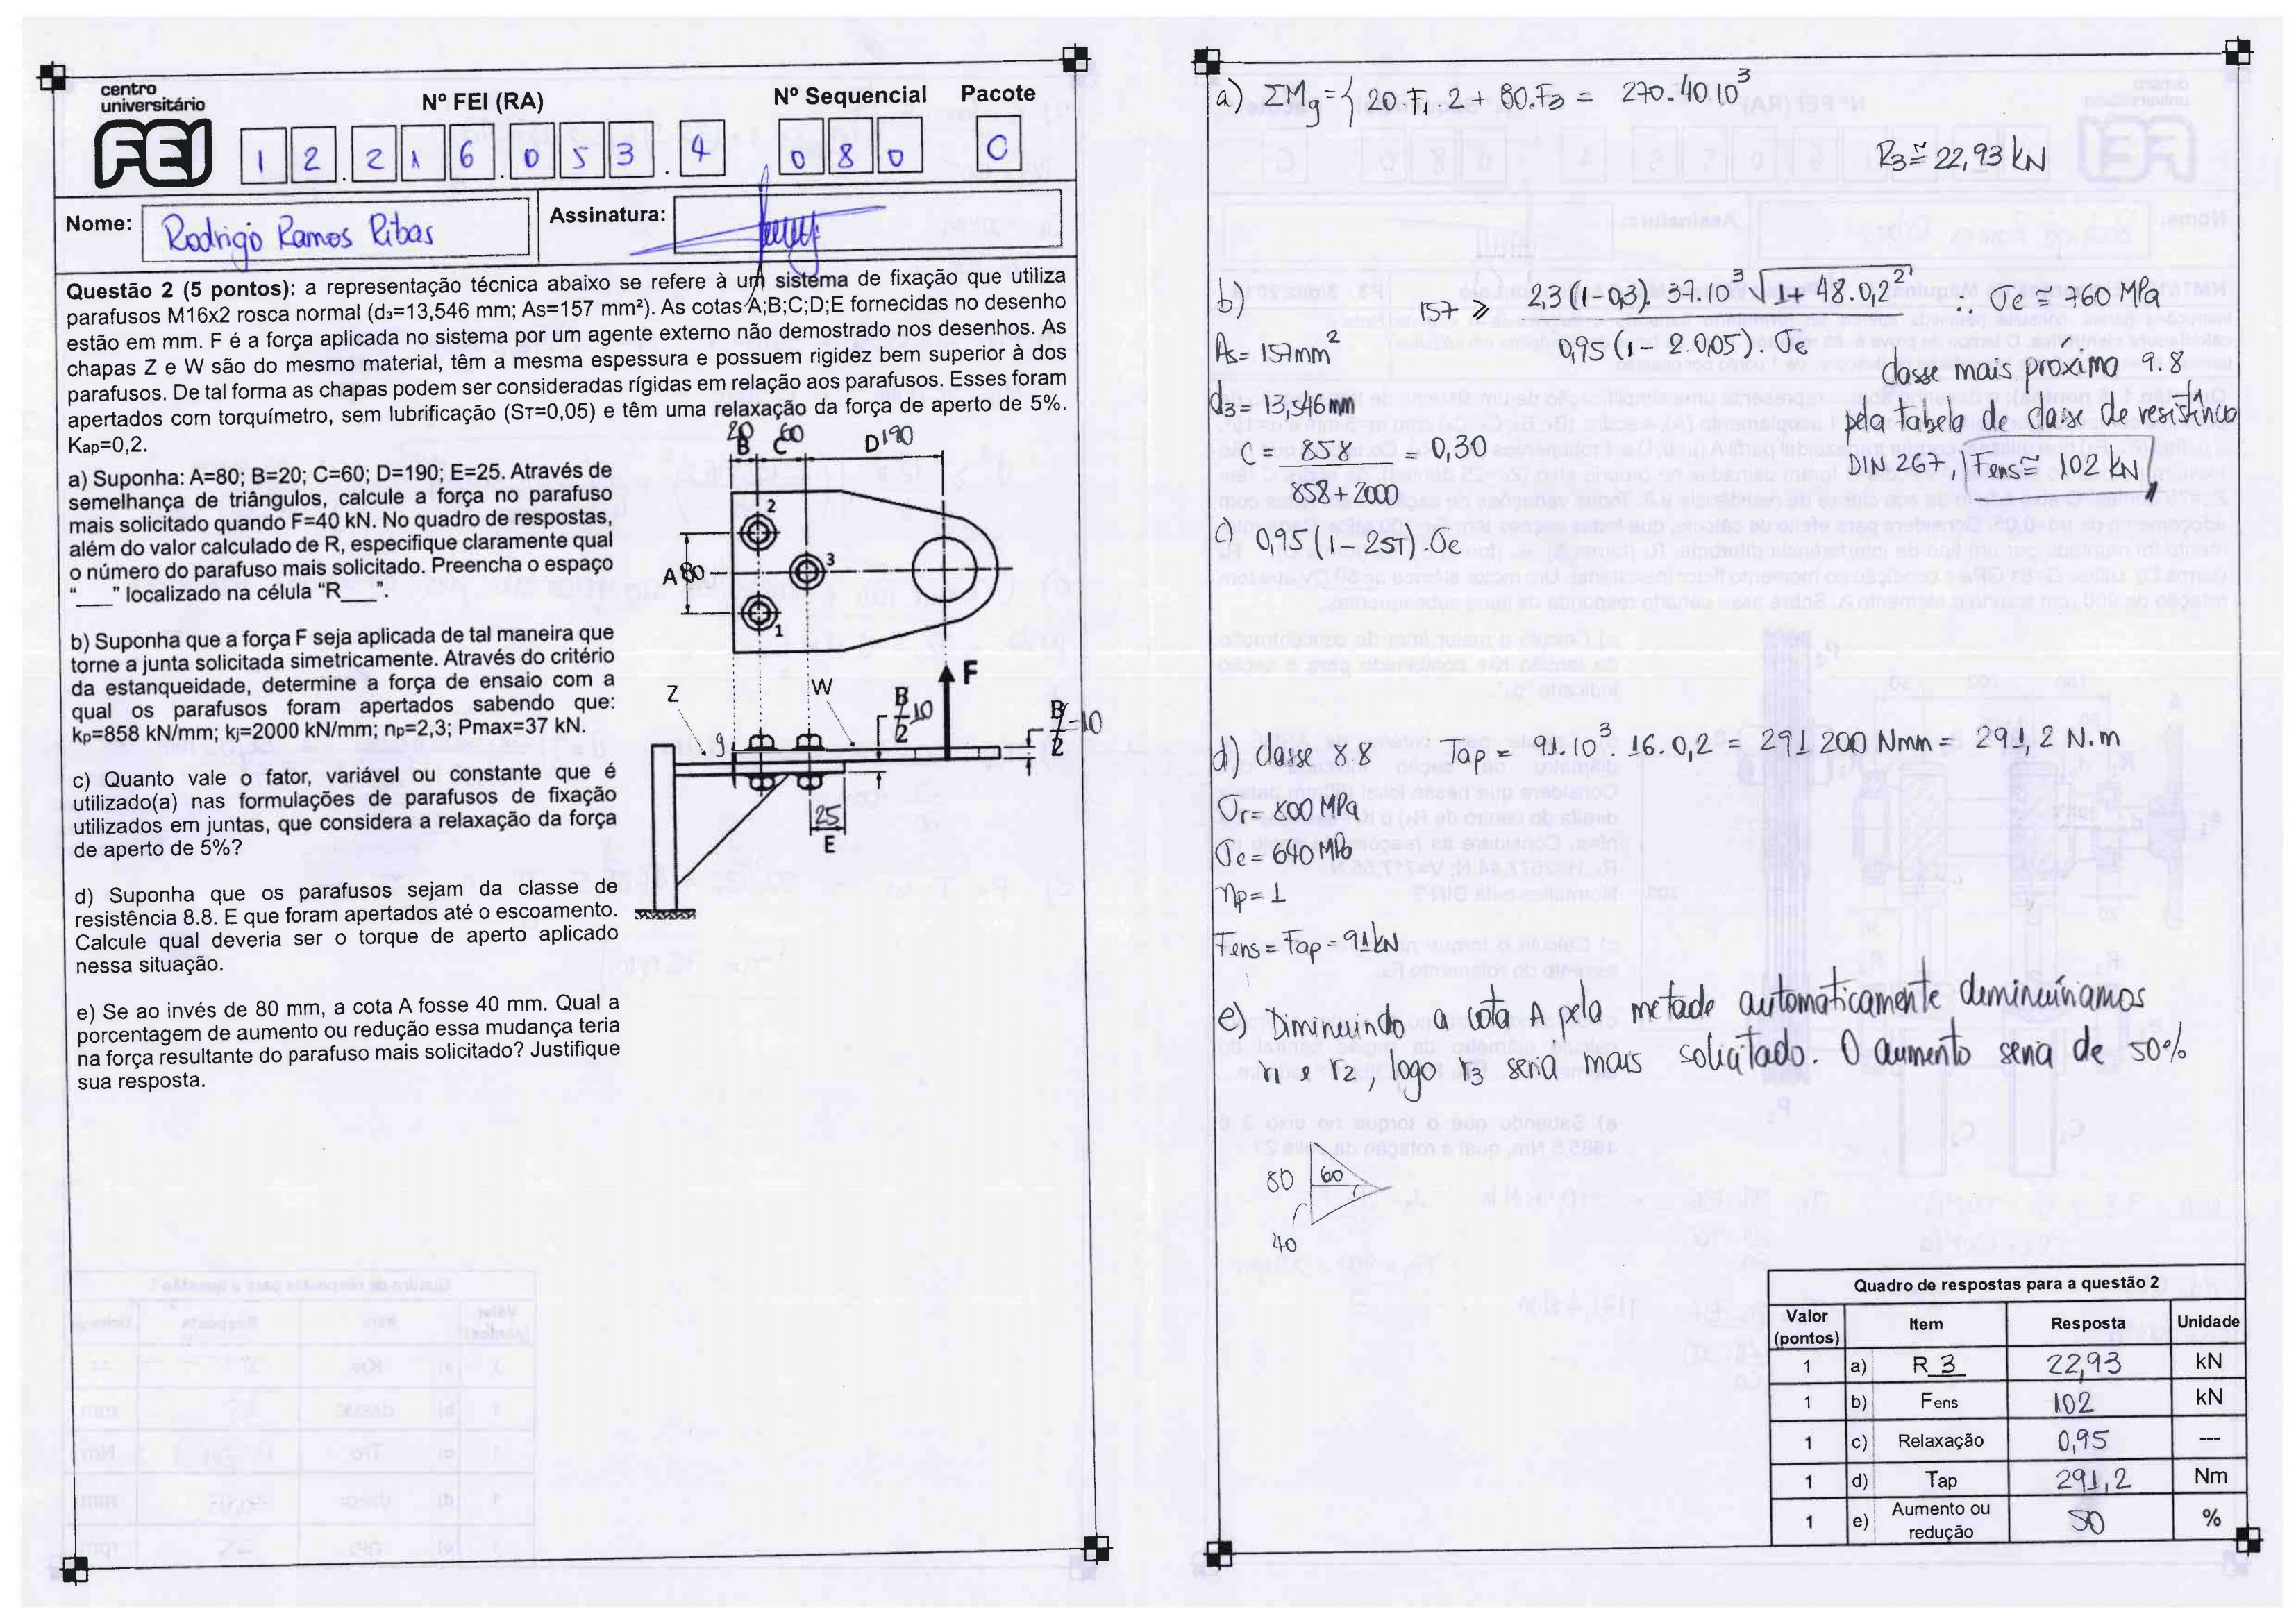 centro
universitário
FEI
Nº FEI (RA)
Nº Sequencial
Pacote
1 2 . 2 1 6 . 0 5 3 . 4
0 8 0
C
Nome:
Rodrigo Ramos Ribas
Assinatura:
Questão 2 (5 pontos): a representação técnica abaixo se refere à um sistema de fixação que utiliza
parafusos M16x2 rosca normal (d3=13,546 mm; As=157 mm²). As cotas A;B;C;D;E fornecidas no desenho
estão em mm. F é a força aplicada no sistema por um agente externo não demostrado nos desenhos. As
chapas Z e W são do mesmo material, têm a mesma espessura e possuem rigidez bem superior à dos
parafusos. De tal forma as chapas podem ser consideradas rígidas em relação aos parafusos. Esses foram
apertados com torquímetro, sem lubrificação (ST=0,05) e têm uma relaxação da força de aperto de 5%.
Kap=0,2.
a) Suponha: A=80; B=20; C=60; D=190; E=25. Através de
semelhança de triângulos, calcule a força no parafuso
mais solicitado quando F=40 kN. No quadro de respostas,
além do valor calculado de R, especifique claramente qual
o número do parafuso mais solicitado. Preencha o espaço
“___” localizado na célula “R___”.
b) Suponha que a força F seja aplicada de tal maneira que
torne a junta solicitada simetricamente. Através do critério
da estanqueidade, determine a força de ensaio com a
qual os parafusos foram apertados sabendo que:
kp=858 kN/mm; kj=2000 kN/mm; np=2,3; Pmax=37 kN.
c) Quanto vale o fator, variável ou constante que é
utilizado(a) nas formulações de parafusos de fixação
utilizados em juntas, que considera a relaxação da força
de aperto de 5%?
d) Suponha que os parafusos sejam da classe de
resistência 8.8. E que foram apertados até o escoamento.
Calcule qual deveria ser o torque de aperto aplicado
nessa situação.
e) Se ao invés de 80 mm, a cota A fosse 40 mm. Qual a
porcentagem de aumento ou redução essa mudança teria
na força resultante do parafuso mais solicitado? Justifique
sua resposta.
20 60 D190
B C
2
A 80
3
1
F
Z
W
B/2 10
B/2=10
g
25
E
a) ΣMg = { 20.F1.2 + 80.F3 = 270.40.10³
R3 ≅ 22,93 kN
b) 157 ⩾ 2,3(1-0,3).37.10³ √1+48.0,2² / 0,95(1-2.0,05).σe ∴ σe ≅ 760 MPa
As = 157mm²
classe mais proxima 9.8
d3 = 13,546mm
pela tabela de classe de resistência
C = 858 / 858+2000 = 0,30
DIN 267, Fens ≅ 102 kN
c) 0,95(1-2ST).σe
d) classe 8.8 Tap = 91.10³.16.0,2 = 291 200 Nmm = 291,2 N.m
σr = 800 MPa
σe = 640 MPa
np = 1
Fens = Fap = 91kN
e) Diminuindo a cota A pela metade automaticamente deminuiriamos
r1 e r2, logo r3 seria mais solicitado. O aumento seria de 50%
80 60
40
Quadro de respostas para a questão 2
Valor (pontos) Item Resposta Unidade
1 a) R 3 22,93 kN
1 b) Fens 102 kN
1 c) Relaxação 0,95 ---
1 d) Tap 291,2 Nm
1 e) Aumento ou redução 50 %